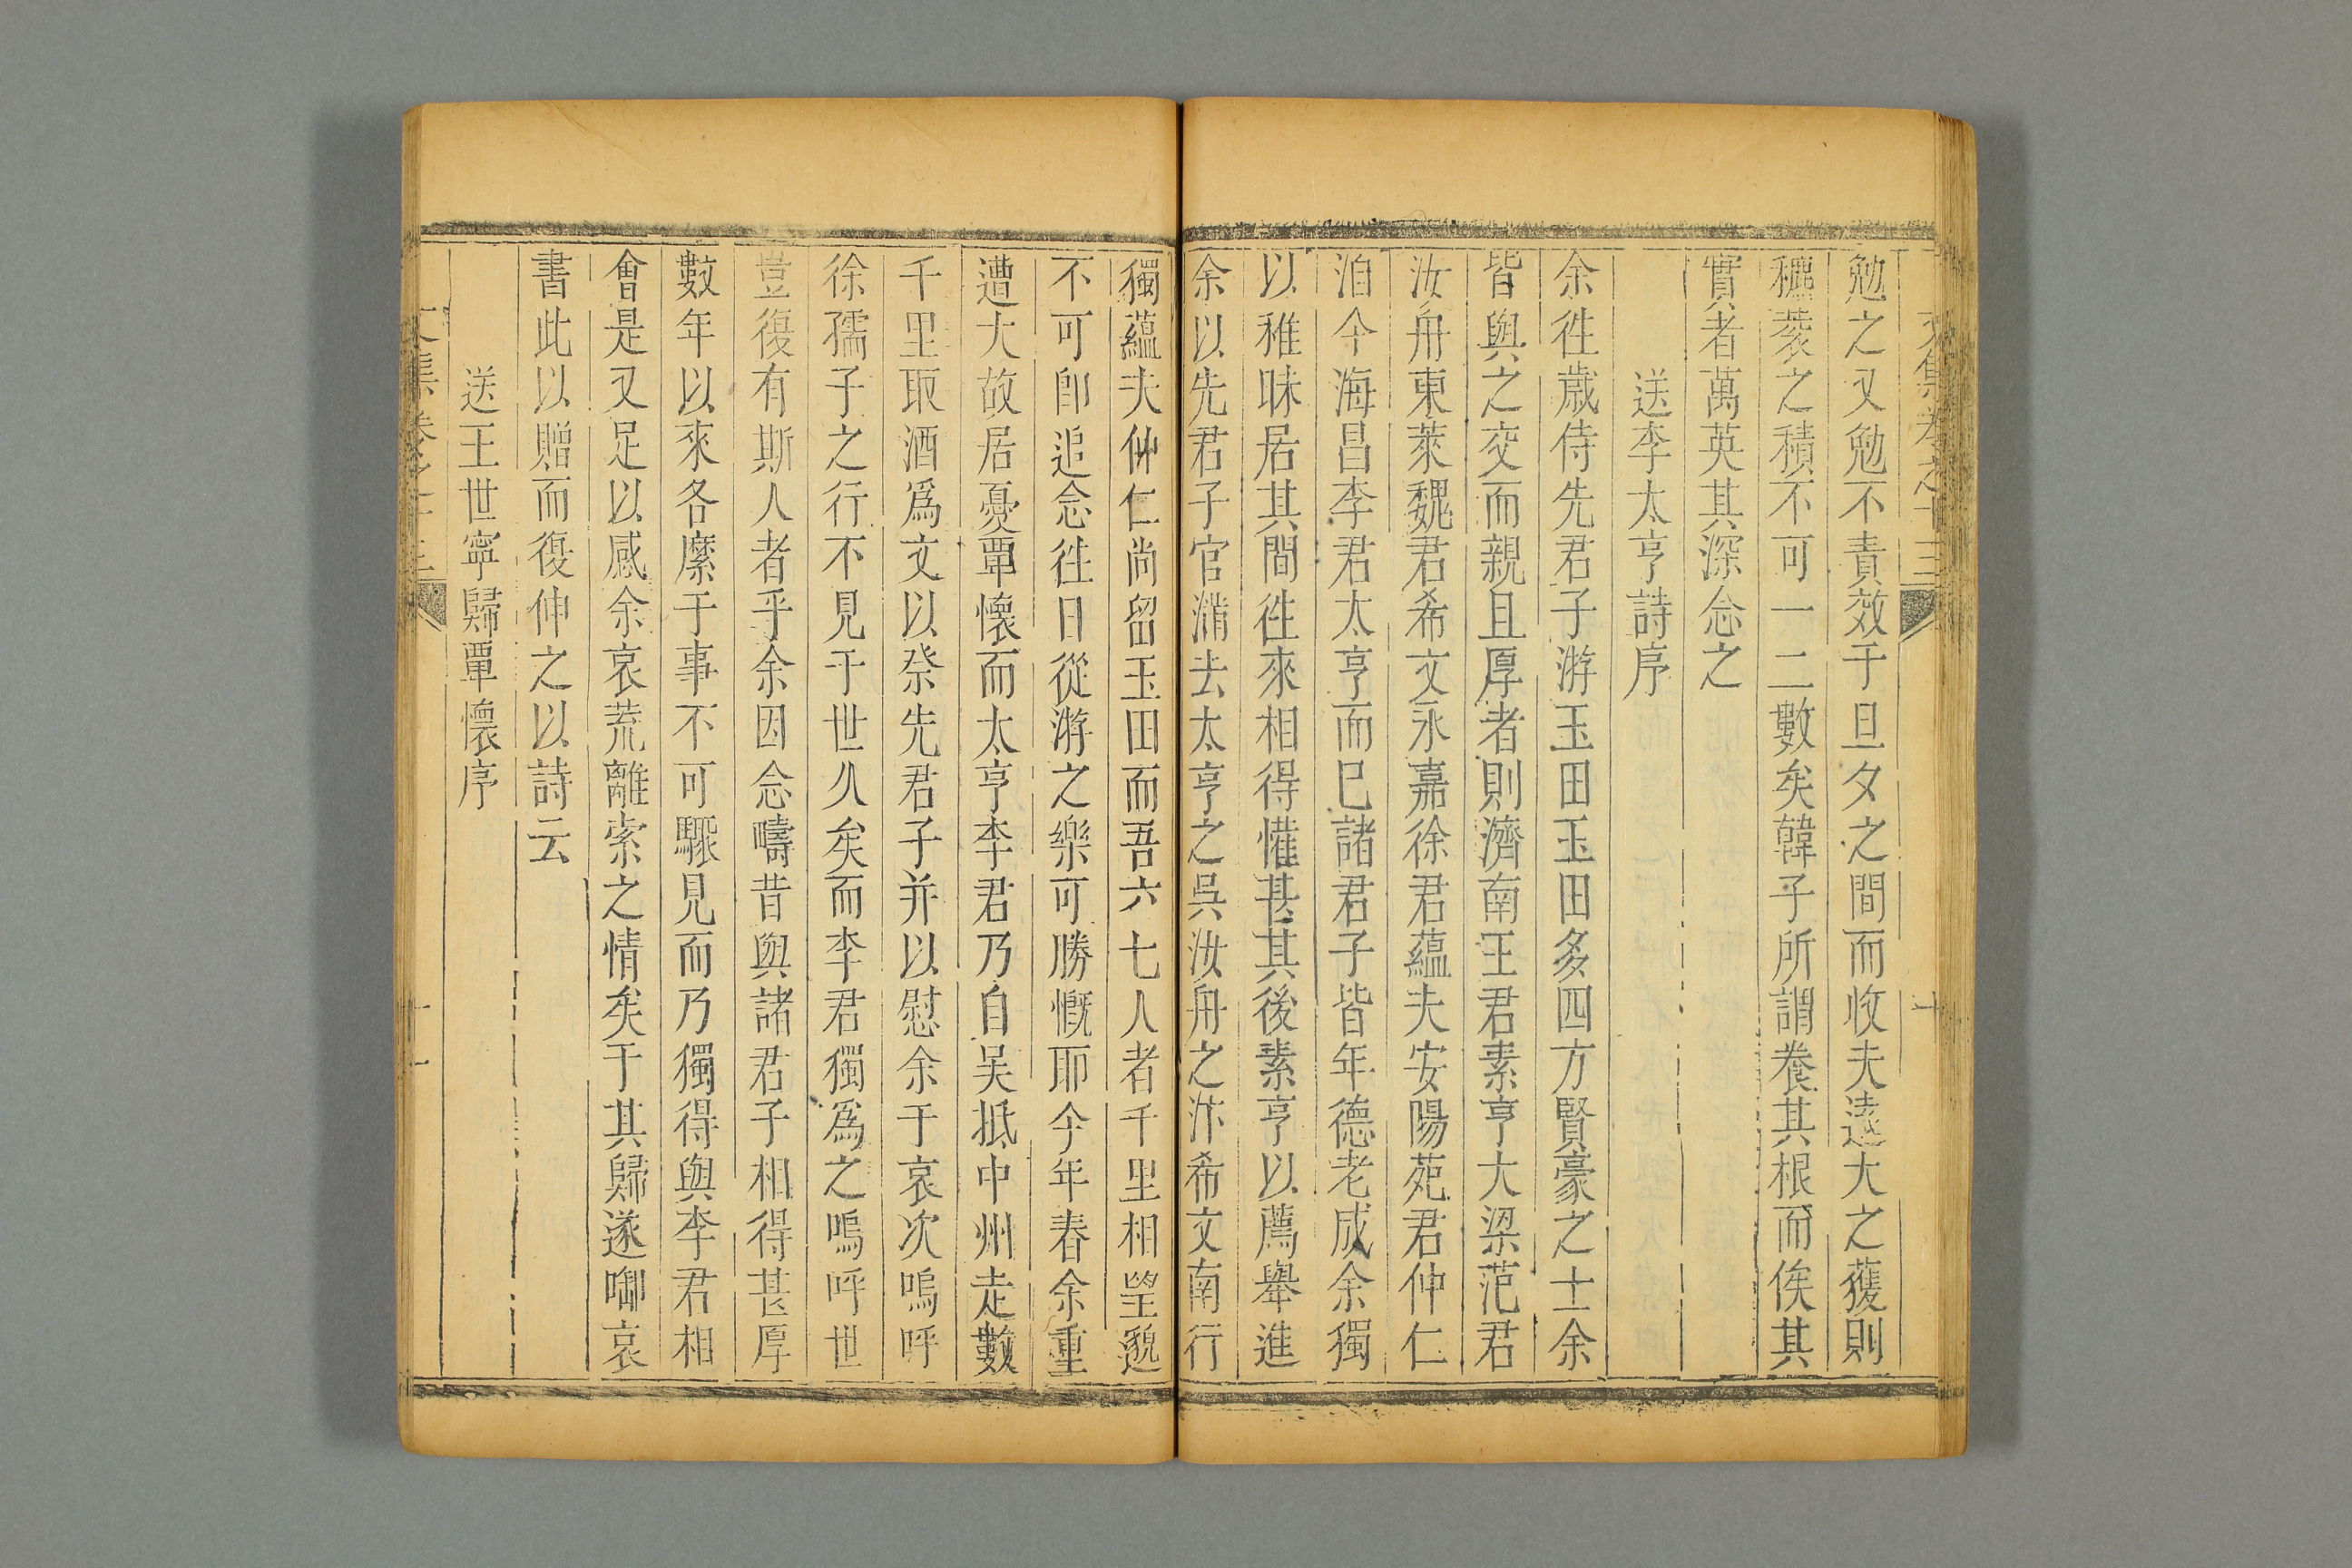 文集卷之十三 十
勉之又勉不責效于旦夕之間而收夫遠大之獲則
穮蔉之積不可一二數矣韓子所謂養其根而俟其
實者萬英其深念之
送李太亨詩序
余徃歲侍先君子游玉田玉田多四方賢豪之士余
皆與之交而親且厚者則濟南王君素亨大梁范君
汝舟東萊魏君希文永嘉徐君蘊夫安陽苑君仲仁
洎今海昌李君太亨而已諸君子皆年德老成余獨
以稚昧居其間徃來相得懽甚其後素亨以薦舉進
余以先君子官滿去太亨之吳汝舟之汴希文南行
獨蘊夫仲仁尚留玉田而吾六七人者千里相望邈
不可卽追念徃日從游之樂可勝慨耶今年春余重
遭大故居憂覃懷而太亨李君乃自吴抵中州走數
千里取酒爲文以祭先君子并以慰余于哀次嗚呼
徐孺子之行不見于世久矣而李君獨爲之嗚呼世
豈復有斯人者乎余因念疇昔與諸君子相得甚厚
數年以來各縻于事不可驟見而乃獨得與李君相
會是又足以感余哀荒離索之情矣于其歸遂啣哀
書此以贈而復伸之以詩云
送王世寧歸覃懷序
文集卷之十三 十一